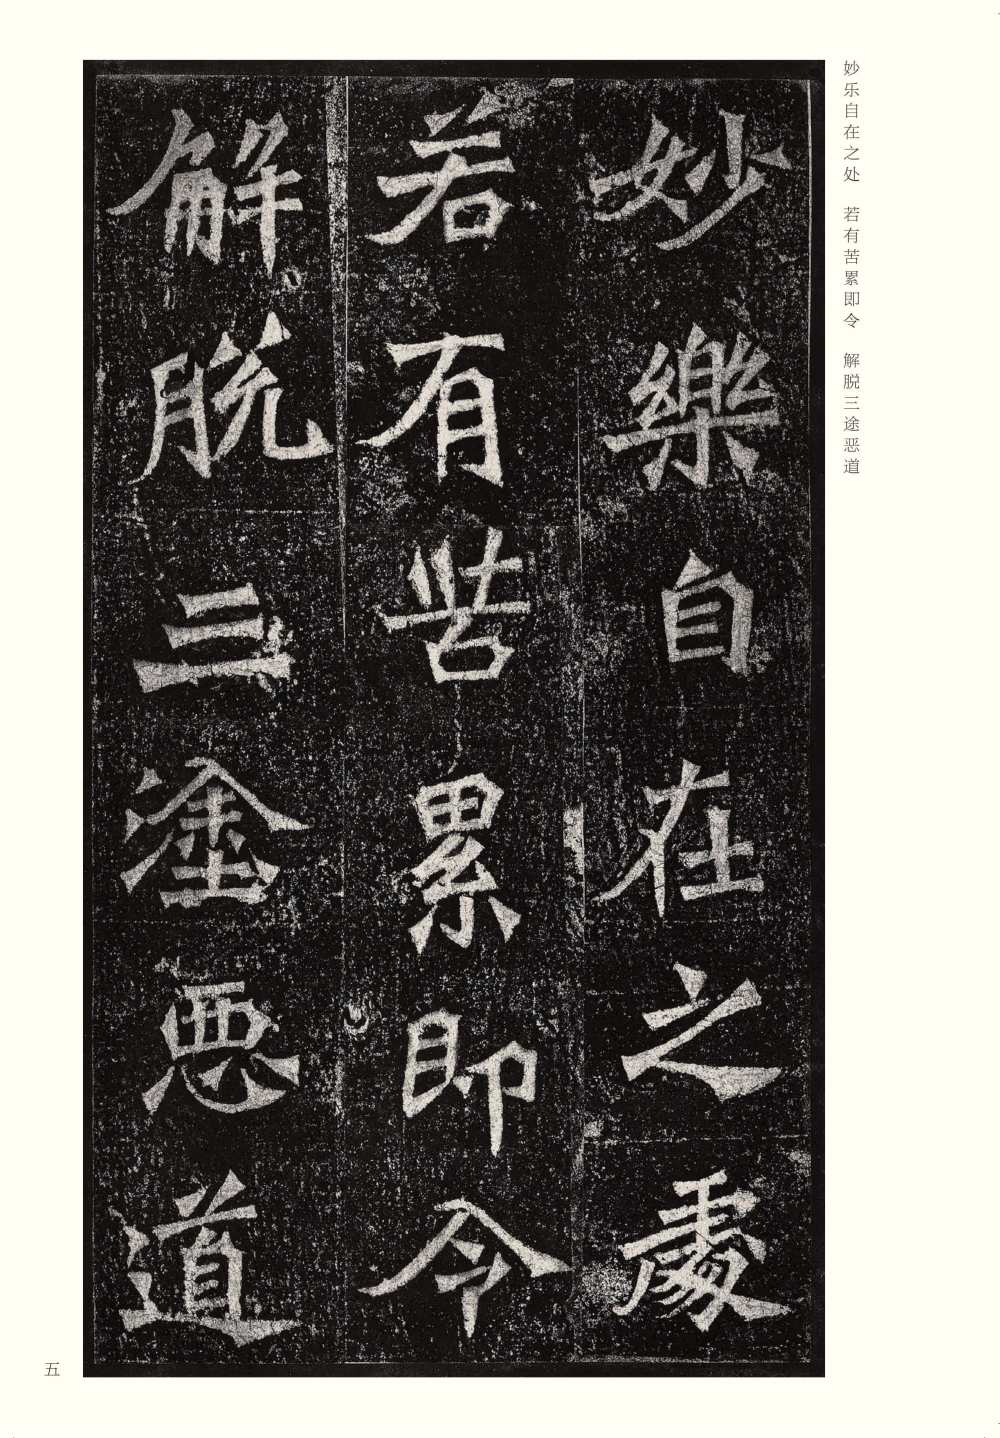 妙乐自在之处　若有苦累即令　解脱三途恶道
妙樂自在之處
若有苦累即令
解脱三塗恶道
五